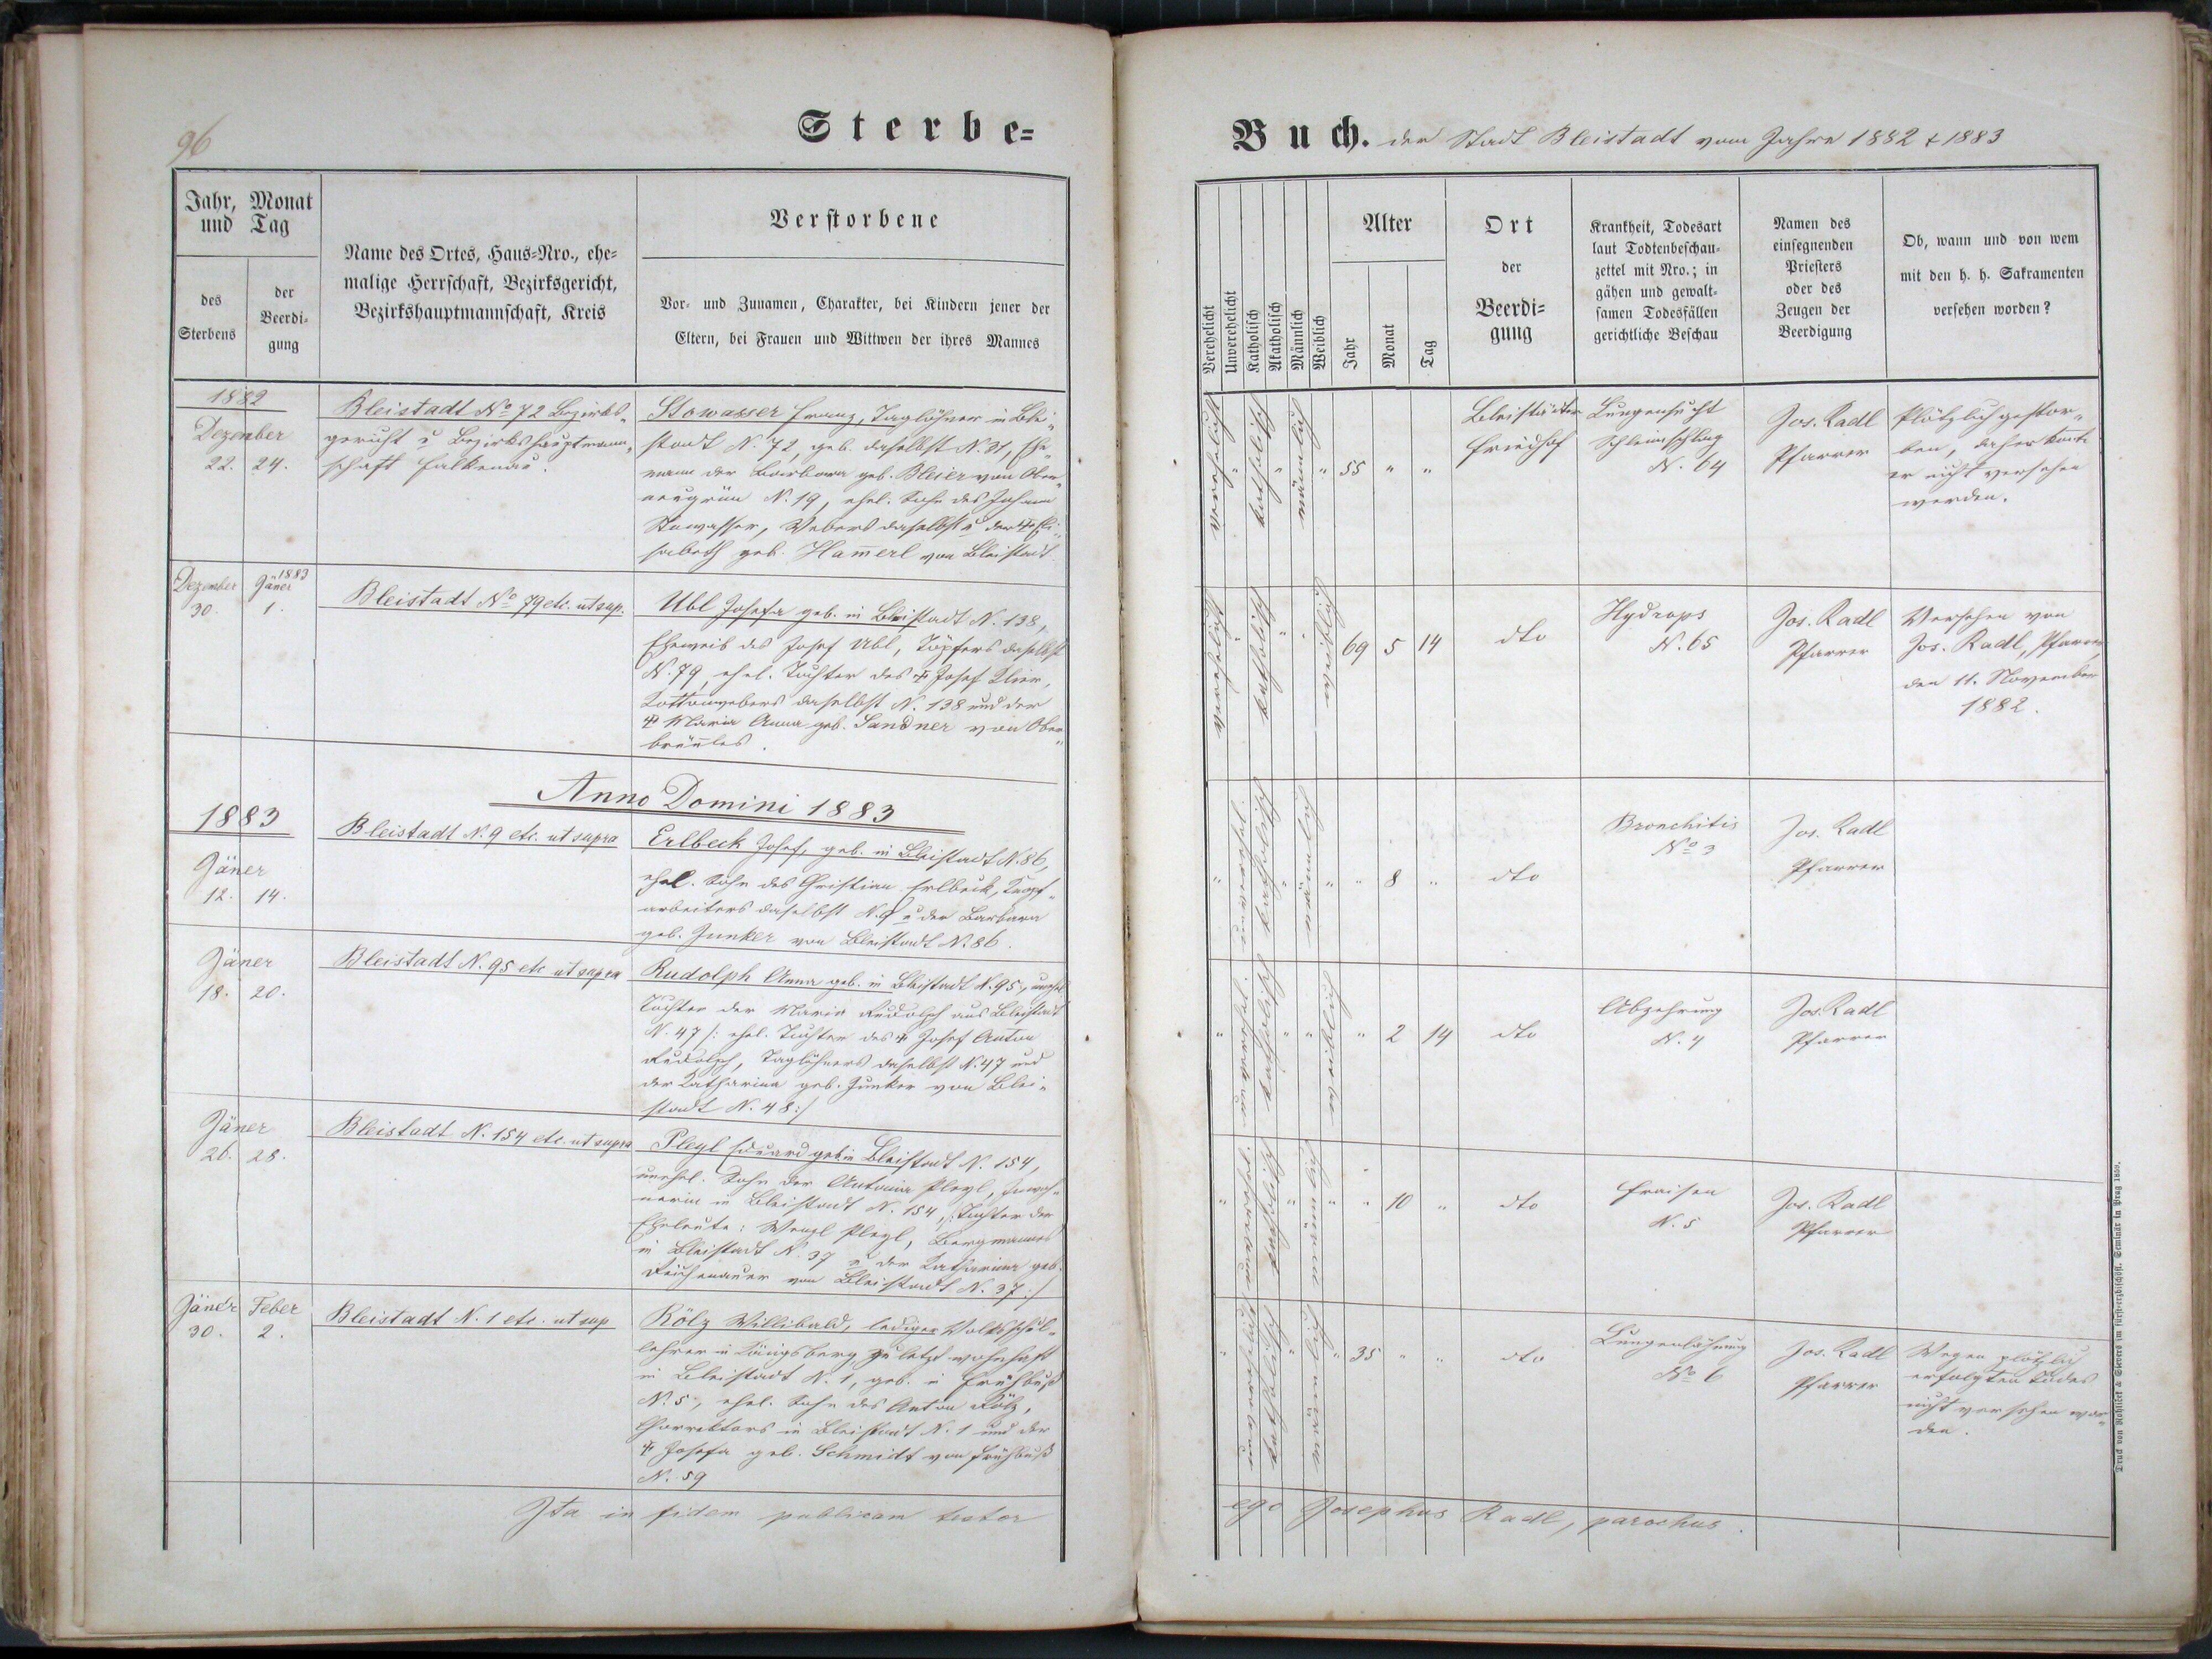 96
Sterbe-
Jahr, Monat
und Tag
des
Sterbens
der
Beerdi-
gung
Name des Ortes, Haus-Nro., ehe-
malige Herrschaft, Bezirksgericht,
Bezirkshauptmannschaft, Kreis
Verstorbene
Vor- und Zunamen, Charakter, bei Kindern jener der
Eltern, bei Frauen und Wittwen der ihres Mannes
1882
Dezember
22. 24.
Bleistadt No 72 Bezirks-
gericht u Bezirkshauptmann-
schaft Falkenau.
Stowasser Franz, Taglöhner in Blei-
stadt N. 72, geb. daselbst N. 31, Ehe-
mann der Barbara geb. Bleier von Ober-
neugrün N. 19, ehel. Sohn des Johann
Stowasser, Webers daselbst u der † Eli-
sabeth geb. Hamerl von Bleistadt.
Dezember
30.
1883
Jäner
1.
Bleistadt No 79 etc. ut sup.
Ubl Josefa geb. in Bleistadt N. 138,
Eheweib des Josef Ubl, Töpfers daselbst
N. 79, ehel. Tochter des † Josef Klier,
daselbst N. 138 und der
† Maria Anna geb. Sandner von Ober-
Anno Domini 1883
1883
Jäner
12. 14.
Bleistadt N. 9 etc. ut supra
Erlbeck Josef, geb. in Bleistadt N. 86,
ehel. Sohn des Christian Erlbeck, Knopf-
arbeiters daselbst N. 9 u der Barbara
geb. Junker von Bleistadt N. 86.
Jäner
18. 20.
Bleistadt N. 95 etc ut supra
Rudolph Anna geb. in Bleistadt N. 95, unehel.
Tochter der Maria Rudolph aus Bleistadt
N. 47 /: ehel. Tochter des † Josef Anton
Rudolph, Taglöhners daselbst N. 47 und
der Katharina geb. Junker von Blei-
stadt N. 48 :/
Jäner
26. 28.
Bleistadt N. 154 etc. ut supra
Pleyl Eduard geb. in Bleistadt N. 154,
unehel. Sohn der Antonia Pleyl, Inwoh-
nerin in Bleistadt N. 154, /: Tochter der
Eheleute: Wenzl Pleyl, Bergmannes
in Bleistadt N. 37 u der Katharina geb.
Reichenauer von Bleistadt N. 37 :/
Jäner
30.
Feber
2.
Bleistadt N. 1 etc. ut sup
Kölz Willibald, lediger Volksschul-
lehrer in Königsberg zuletzt wohnhaft
in Bleistadt N. 1, geb. in Frühbuß
N. 5, ehel. Sohn des Anton Kölz,
in Bleistadt N. 1 und der
† Josefa geb. Schmidt von Frühbuß
N. 59
Ita in fidem publicam testor
Buch. der Stadt Bleistadt vom Jahre 1882 & 1883
Verehelicht
Unverehelicht
Katholisch
Akatholisch
Männlich
Weiblich
Alter
Jahr
Monat
Tag
Ort
der
Beerdi-
gung
Krankheit, Todesart
laut Todtenbeschau-
zettel mit Nro.; in
gähen und gewalt-
samen Todesfällen
gerichtliche Beschau
Namen des
einsegnenden
Priesters
oder des
Zeugen der
Beerdigung
Ob, wann und von wem
mit den h. h. Sakramenten
versehen worden?
verehelicht " katholisch männlich " 55 " "
Bleistädter
Friedhof
Lungensucht
Schleimschlag
N. 64
Jos. Radl
Pfarrer
Plötzlich gestor-
ben, daher konte
er nicht versehen
werden.
verehelicht " katholisch " " weiblich 69 5 14
dto
Hydrops
N. 65
Jos. Radl
Pfarrer
Versehen von
Jos. Radl, Pfarrer
den 11. November
1882.
" unverehel. katholisch " männlich " " 8 "
dto
Bronchitis
No 3
Jos. Radl
Pfarrer
" unverehel. katholisch " " weiblich " 2 14
dto
Abzehrung
N. 4
Jos. Radl
Pfarrer
" unverehel. katholisch " männlich " " 10 "
dto
Fraisen
N. 5
Jos. Radl
Pfarrer
" unverehelicht katholisch " männlich " 35 " "
dto
Lungenlähmung
No 6
Jos. Radl
Pfarrer
Wegen plötzlich
erfolgten Todes
nicht versehen wor-
den.
ego Josephus Radl, parochus.
Druck von Rohliček & Sievers im fürst-erzbischöfl. Seminär in Prag 1859.